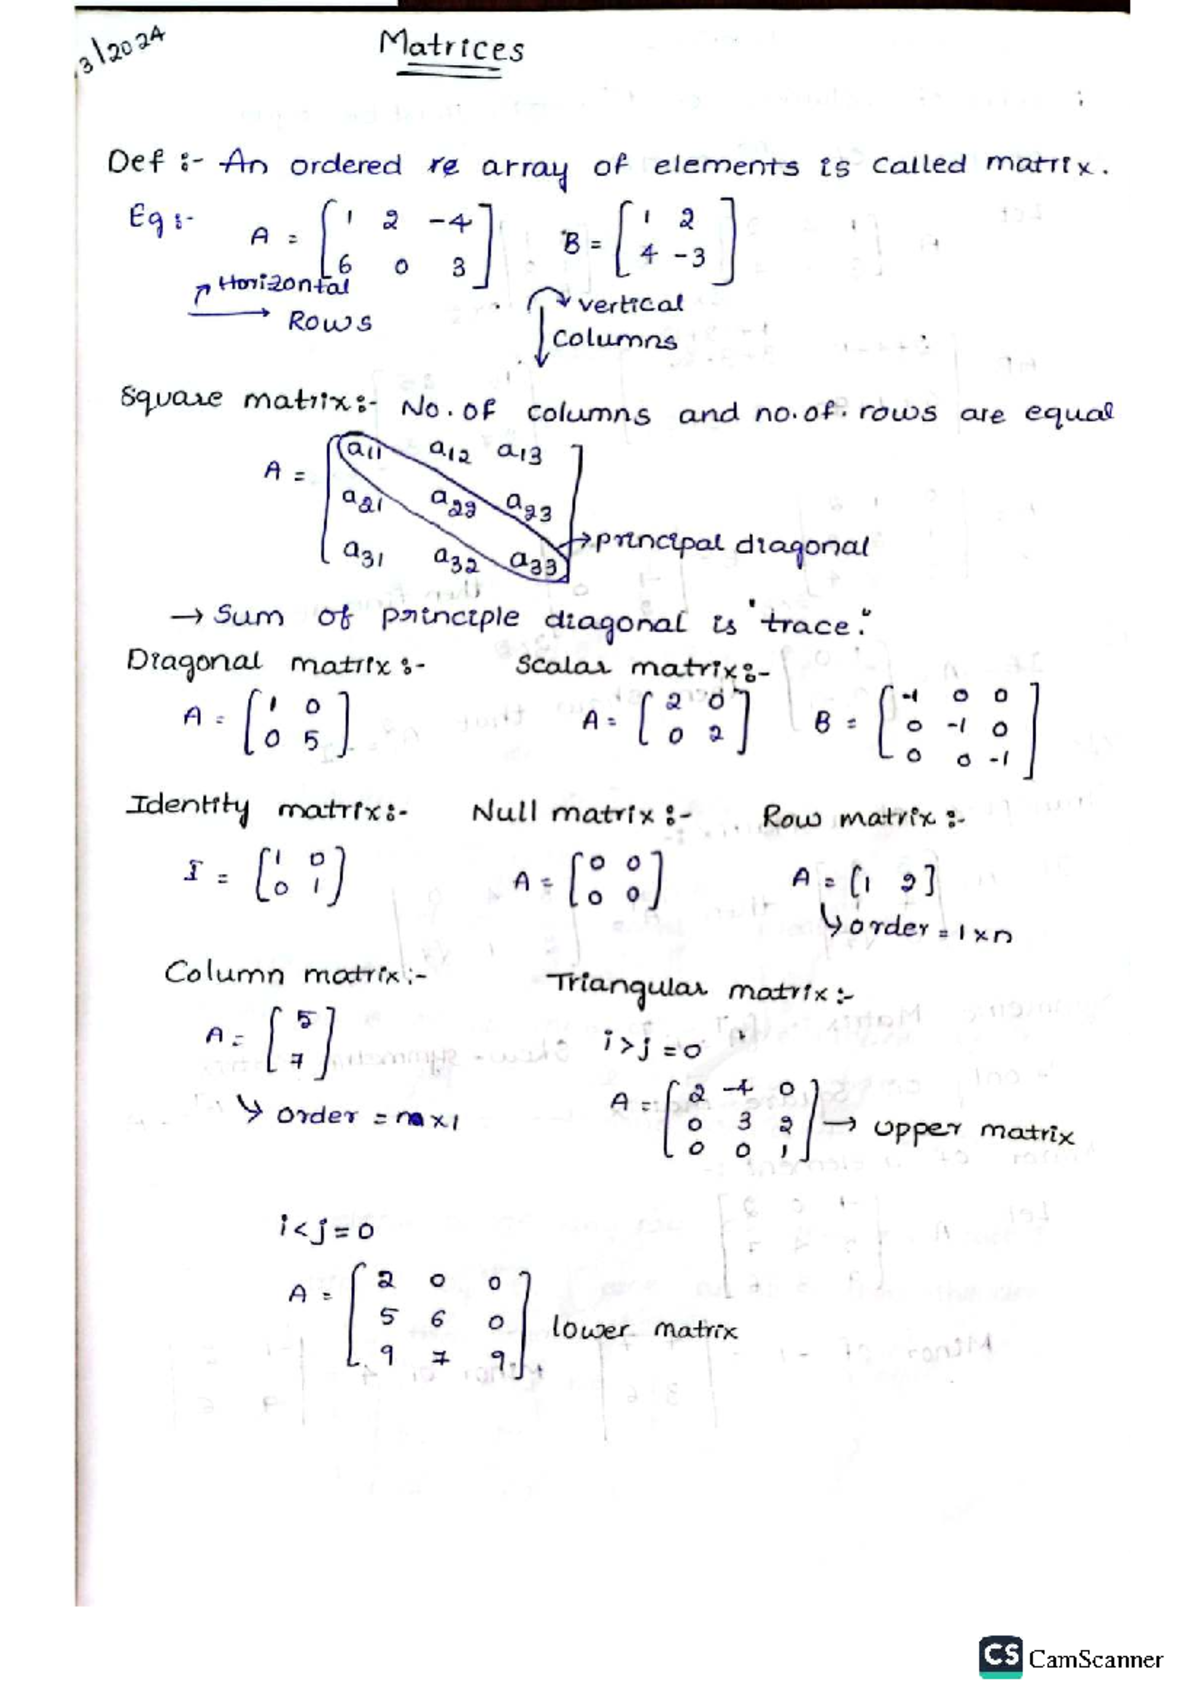 3/2024
Matrices
Def :- An ordered re array of elements is called matrix.
Eg :- A = [1 2 -4 B = [1 2
6 0 3] 4 -3]
Horizontal
Rows
vertical
columns
Square matrix:- No. of columns and no. of. rows are equal
A = [a11 a12 a13
a21 a22 a23
a31 a32 a33]
→ principal diagonal
→ Sum of principle diagonal is "trace."
Diagonal matrix :- Scalar matrix :-
A = [1 0 A = [2 0 B = [-1 0 0
0 5] 0 2] 0 -1 0
0 0 -1]
Identity matrix :- Null matrix :- Row matrix :-
I = [1 0 A = [0 0 A = [1 2]
0 1] 0 0]
↳ order = 1 x n
Column matrix :- Triangular matrix :-
A = [5 i > j = 0
7]
↳ order = m x 1
A = [2 -4 0
0 3 2
0 0 1] → upper matrix
i < j = 0
A = [2 0 0
5 6 0
9 7 9] lower matrix
CS CamScanner